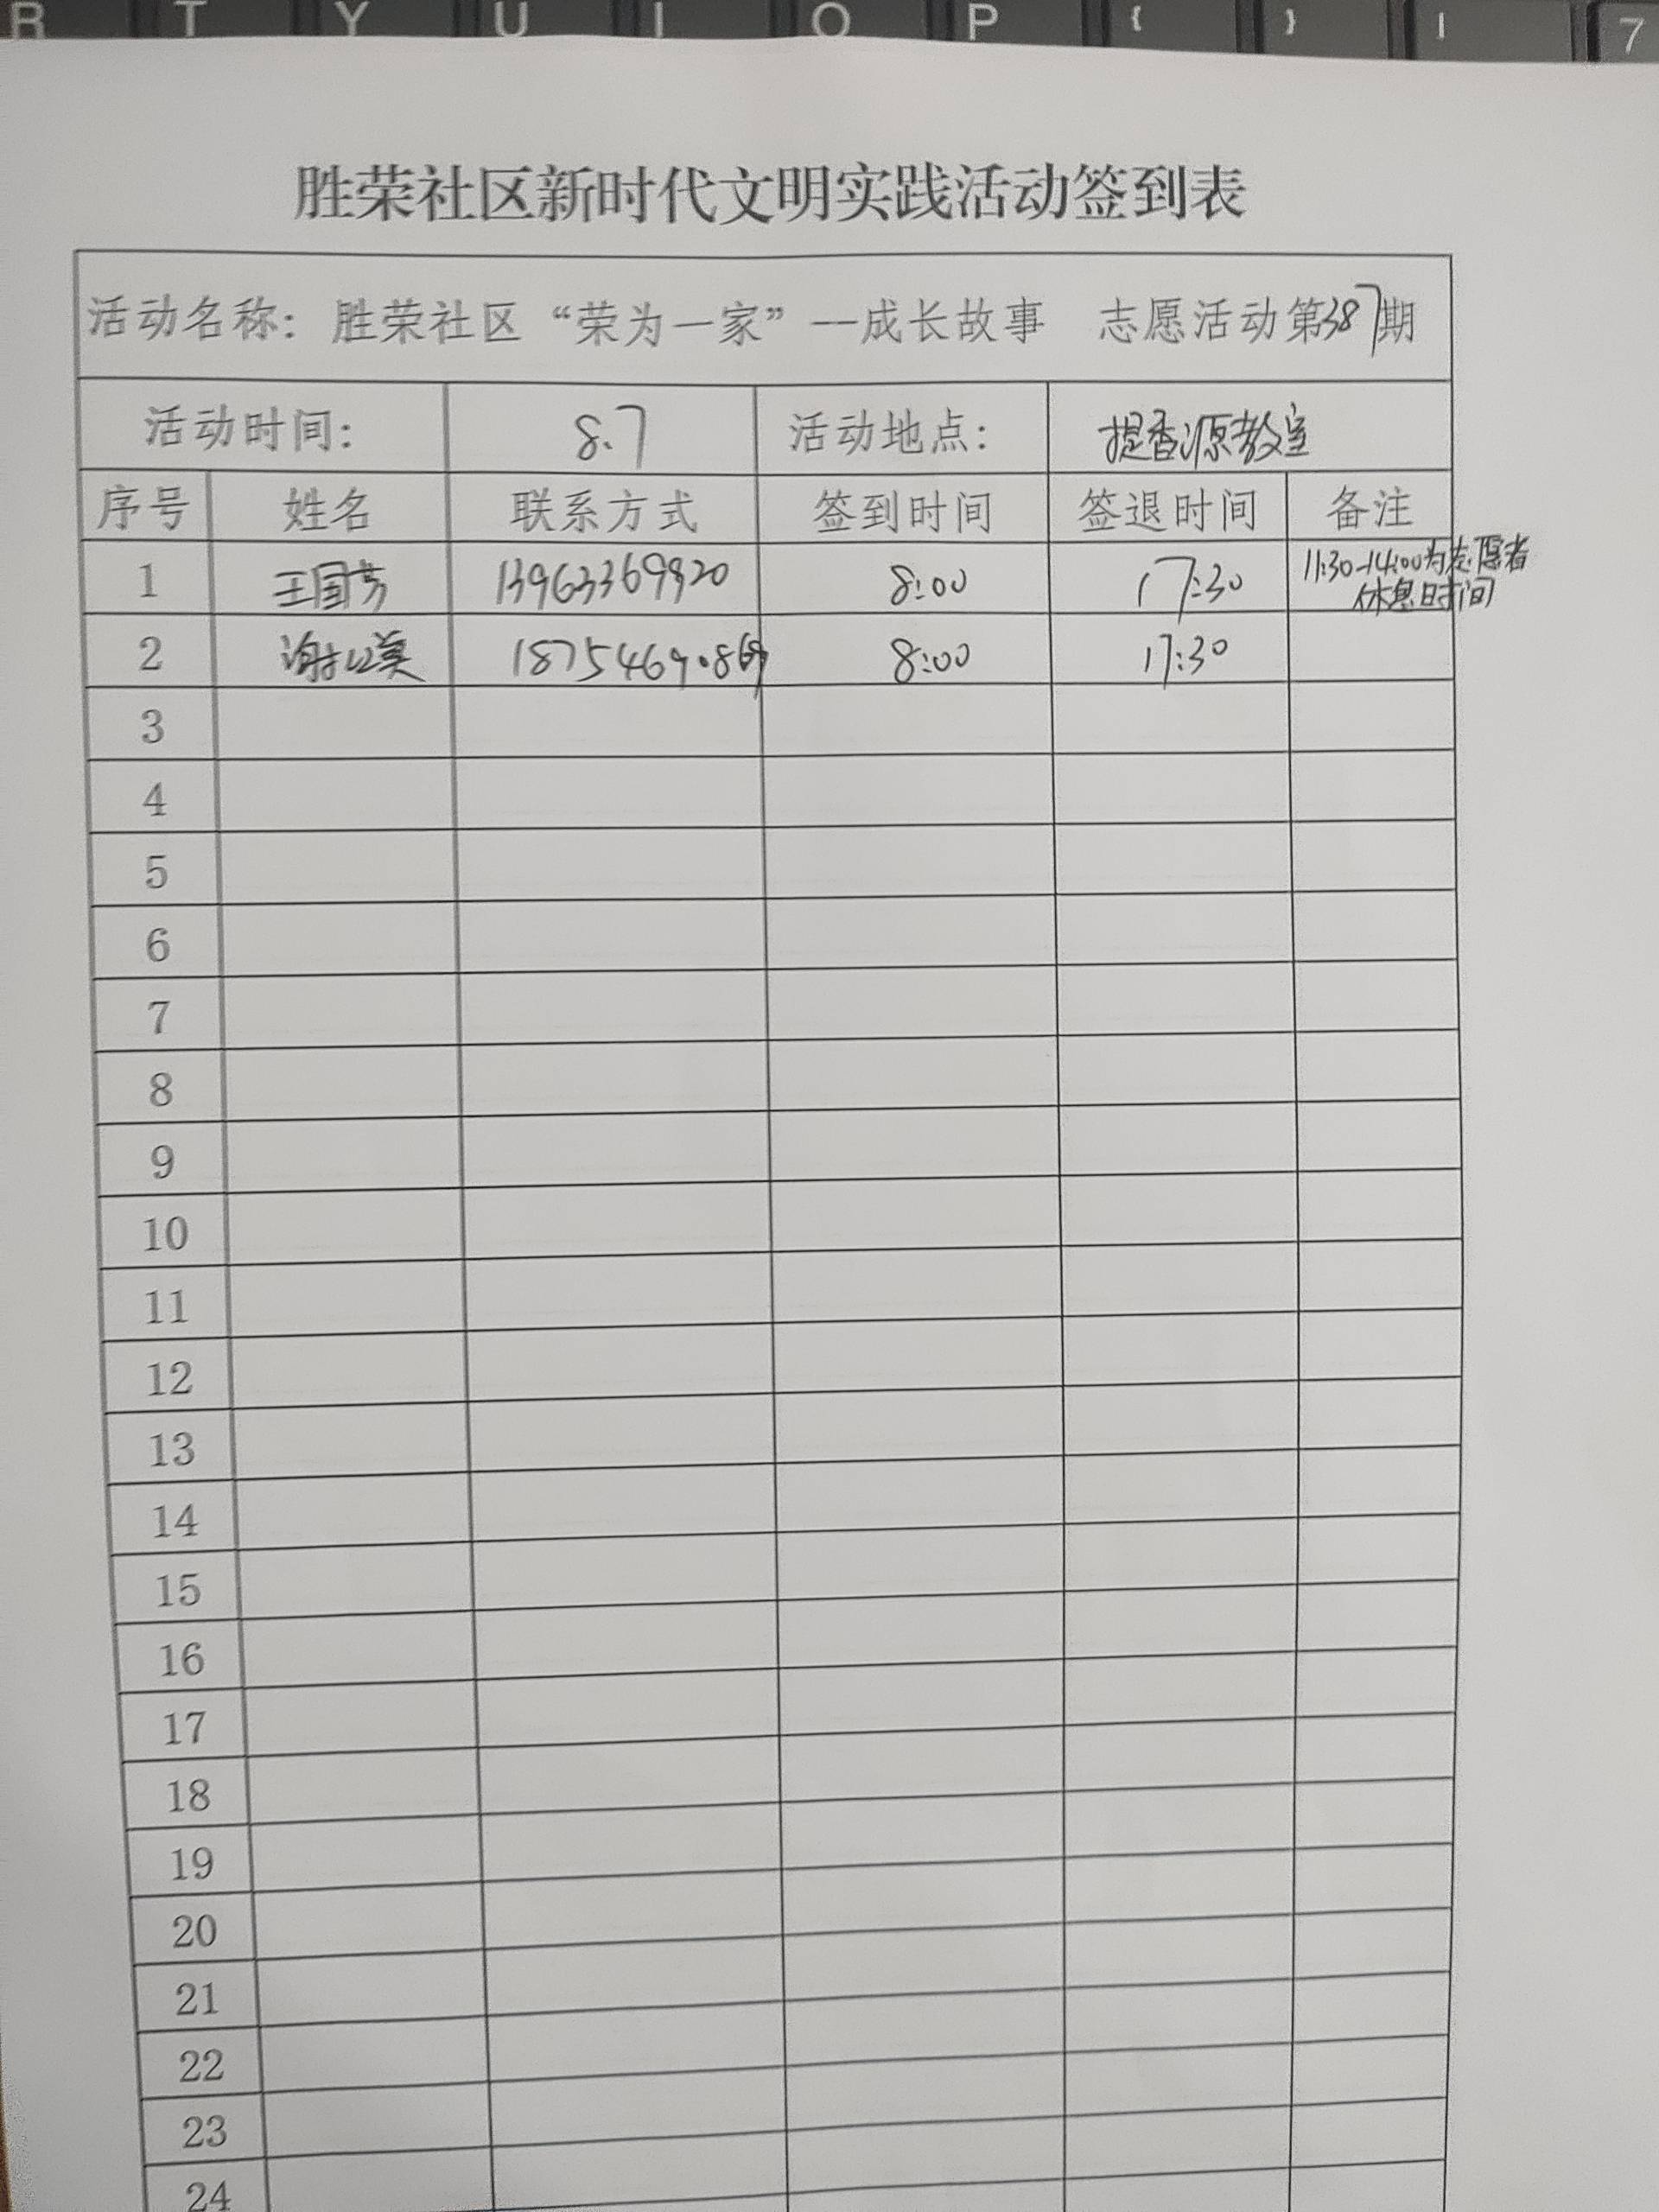 R T Y U I O P { } | 7
胜荣社区新时代文明实践活动签到表
活动名称：胜荣社区“荣为一家”--成长故事 志愿活动第387期
活动时间： 8.7 活动地点： 提香源教室
序号 姓名 联系方式 签到时间 签退时间 备注
1 王国芳 13963369920 8:00 17:30 11:30-14:00为志愿者
休息时间
2 8:00 17:30
3
4
5
6
7
8
9
10
11
12
13
14
15
16
17
18
19
20
21
22
23
24